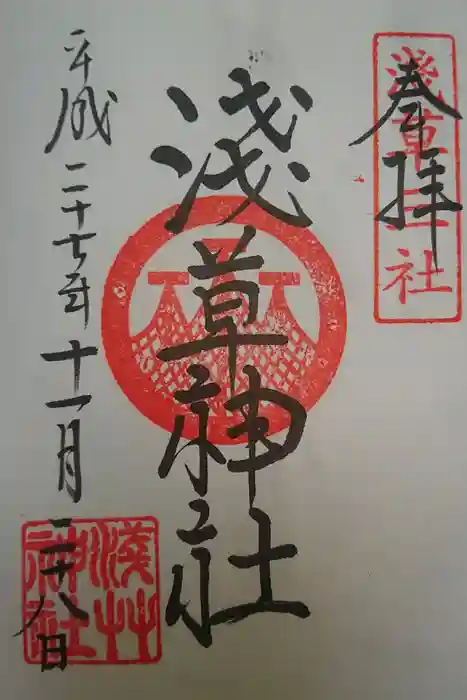 奉拝
淺草三社
淺草神社
平成二十七年十一月二十八日
淺草神社